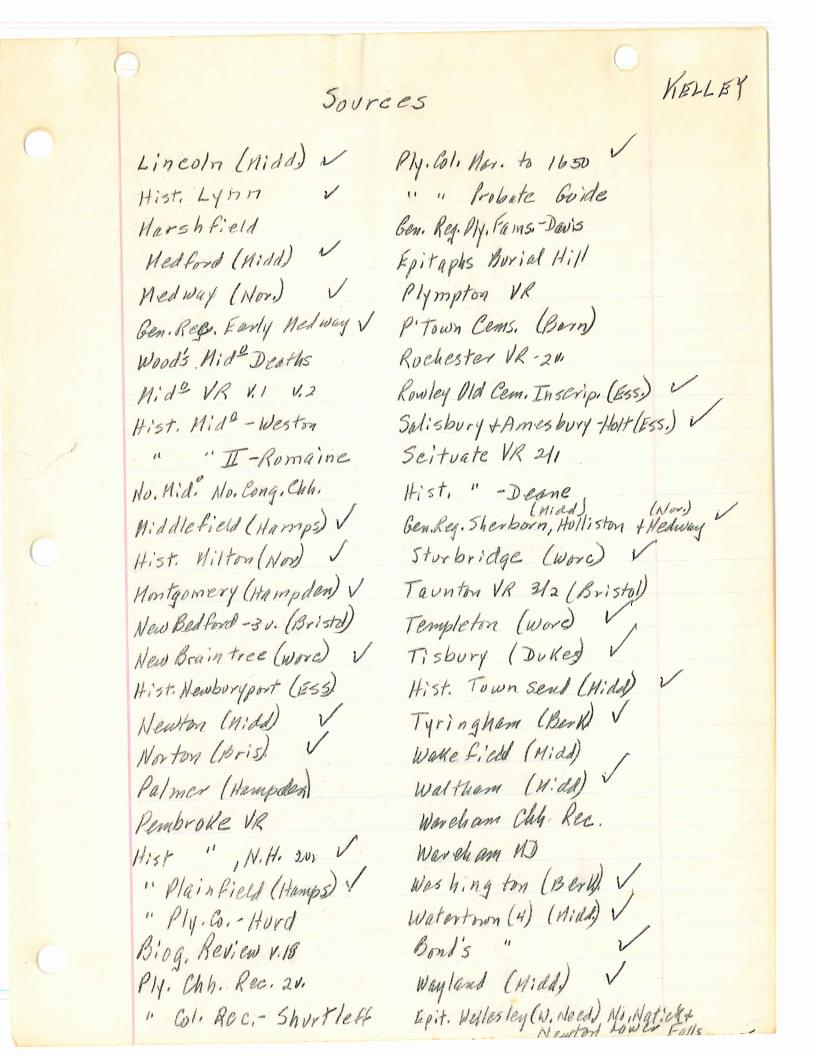 Sources
KELLEY
Lincoln (Midd.) ✓
Hist. Lynn ✓
Marshfield
Medford (Midd) ✓
Medway (Nor.) ✓
Gen. Reg. Early Medway ✓
Wood's Midᵒ Deaths
Midᵒ VR v.1 v.2
Hist. Midᵒ - Weston
" " II - Romaine
No. Midᵒ No. Cong. Chh.
Middlefield (Hamps) ✓
Hist. Milton (Nor) ✓
Montgomery (Hampden) ✓
New Bedford - 3v. (Bristol)
New Braintree (Worc) ✓
Hist. Newburyport (Ess)
Newton (Midd) ✓
Norton (Bris). ✓
Palmer (Hampden)
Pembroke VR
Hist ", N.H. 2v. ✓
" Plainfield (Hamps) ✓
" Ply. Co. - Hurd
Biog. Review v.18
Ply. Chh. Rec. 2v.
" Col. Rec. - Shurtleff
Ply. Col. Mar. to 1650 ✓
" " Probate Guide
Gen. Reg. Ply. Fams. - Davis
Epitaphs Burial Hill
Plympton VR
P'Town Cems. (Barn)
Rochester VR - 2v.
Rowley Old Cem. Inscrip. (Ess.) ✓
Salisbury + Amesbury - Hoyt (Ess.) ✓
Scituate VR 2/1
Hist. " - Deane
(Midd) (Nor.)
Gen. Reg. Sherborn, Holliston + Medway ✓
Sturbridge (Worc) ✓
Taunton VR 3/2 (Bristol)
Templeton (Worc) ✓
Tisbury (Dukes) ✓
Hist. Townsend (Midd) ✓
Tyringham (Berk) ✓
Wakefield (Midd)
Waltham (Midd) ✓
Wareham Chh. Rec.
Wareham
Washington (Berk). ✓
Watertown (4) (Midd.) ✓
Bond's " ✓
Wayland (Midd.) ✓
Epit. Wellesley (W. Need.) No. Natick +
Newton Lower Falls